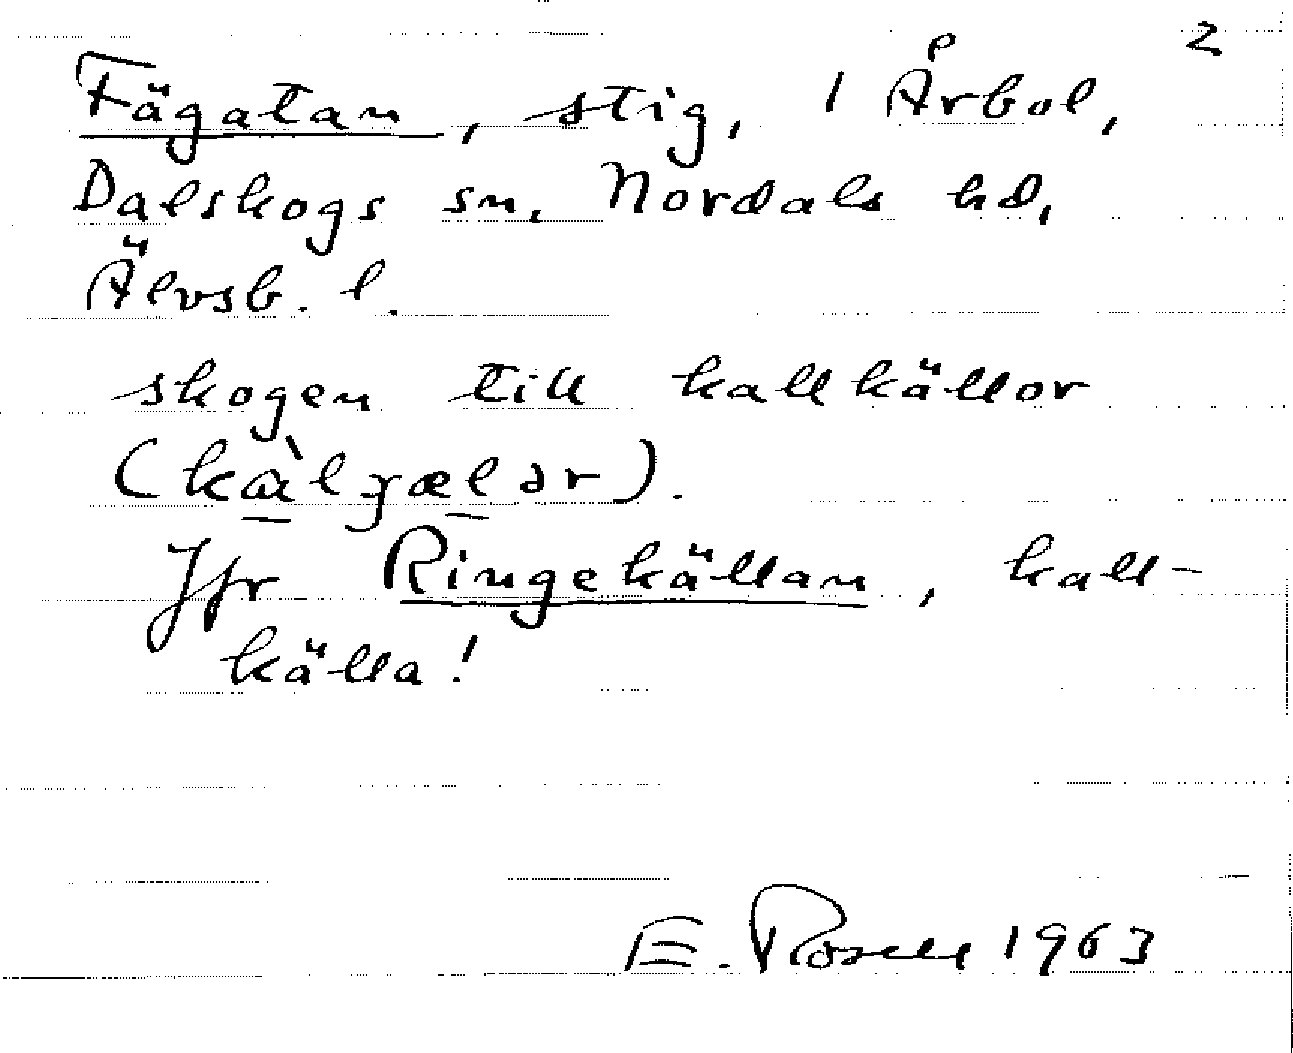 2
Fägatan, stig, 1 Årbol,
Dalskogs sn. Nordals hd,
Älvsb. l.
skogen till kallkällor
(kàlgælər).
Jfr Ringekällan, kall-
källa!
E. Rosell 1963